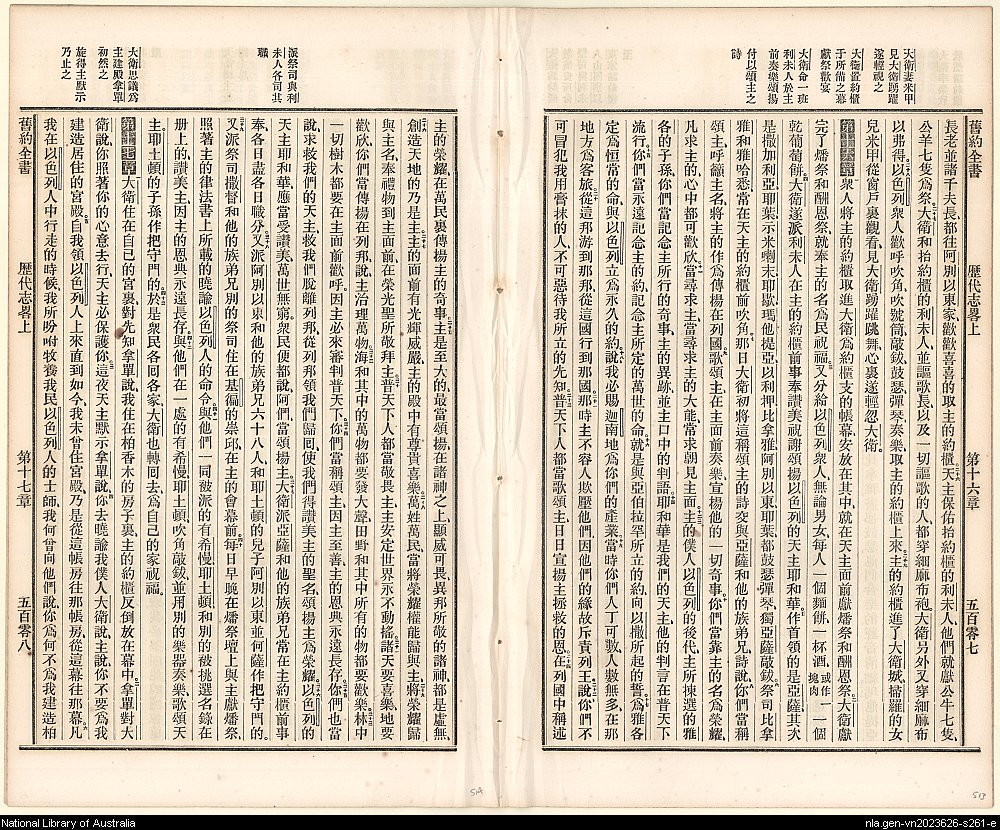 大衛妻米甲
見大衛踴躍
遂輕視之
大衛置約櫃
于所備之幕
獻祭歡宴
大衛命一班
利未人於主
前奏樂頌揚
付以頌主之
詩
舊約全書 歷代志畧上 第十六章 五百零七
長老並諸千夫長、都往阿別以東家、歡歡喜喜的取主的約櫃、天主保佑抬約櫃的利未人、他們就獻公牛七隻、
公羊七隻爲祭、大衛和抬約櫃的利未人、並謳歌長、以及一切謳歌的人、都穿細麻布袍、大衛另外又穿細麻布
以弗得、以色列衆人歡呼吹角、吹號筒、敲鈸、鼓瑟、彈琴、奏樂、取主的約櫃上來、主的約櫃進了大衛城、掃羅的女
兒米甲從窗戶裏觀看、見大衛踴躍跳舞、心裏遂輕忽大衛。
第十六章 衆人將主的約櫃取進大衛爲約櫃支的帳幕、安放在其中、就在天主面前獻燔祭和酬恩祭、大衛獻
完了燔祭和酬恩祭、就奉主的名爲民祝福、又分給以色列衆人、無論男女、每人一個麵餅、一杯酒、或作一塊肉一個
乾葡萄餅、大衛遂派利未人在主的約櫃前事奉、讚美祝謝頌揚以色列的天主耶和華、作首領的是亞薩、其次
是撒加利亞、耶葉、示米喇末、耶歇、瑪他提亞、以利押、比拿雅、阿別以東、耶葉、都鼓瑟彈琴、獨亞薩敲鈸、祭司比拿
雅和雅哈悉、常在天主的約櫃前吹角、那日大衛初將這稱頌主的詩、交與亞薩和他的族弟兄、詩說、你們當稱
頌主、呼籲主名、將主的作爲傳揚在列國、歌頌主、在主面前奏樂、宣揚他的一切奇事、你們當靠主的名爲榮耀、
凡求主的、心中都可歡欣、當尋求主、當尋求主的大能、常求朝見主面、主的僕人以色列的後代、主所揀選的雅
各的子孫、你們當記念主所行的奇事、主的異跡、並主口中的判語、耶和華是我們的天主、他的判言在普天下
流行、你們當永遠記念主的約、記念主所定的萬世的命、就是與亞伯拉罕所立的約、向以撒所起的誓、爲雅各
定爲恒常的命、與以色列立爲永久的約、說、我必賜迦南地爲你們的產業、當時你們人丁可數、人數無多、在那
地方爲客旅、從這邦游到那邦、從這國行到那國、那時主不容人欺壓他們、因他們的緣故斥責列王、說、你們不
可冒犯我用膏抹的人、不可惡待我所立的先知、普天下人都當歌頌主、日日宣揚主拯救的恩、在列國中稱述
派祭司與利
未人各司其
職
大衛思議爲
主建殿拿單
初然之
旋得主默示
乃止之
主的榮耀、在萬民裏傳揚主的奇事、主是至大的、最當頌揚、在諸神之上、顯威可畏、異邦所敬的諸神、都是虛無、
創造天地的乃是主、主的面前有光輝威嚴、主的殿中有尊貴喜樂、萬姓萬民、當將榮耀權能歸與主、將榮耀歸
與主名、奉禮物到主面前、在榮光聖所敬拜主、普天下人都當敬畏主、主安定世界、永不動搖、諸天要喜樂、地要
歡欣、你們當傳揚在列邦、說、主治理萬物、海和其中的萬物、都要發大聲、田野和其中所有的物、都要歡樂、林中
一切樹木、都要在主面前歡呼、因主必來審判普天下、你們當稱頌主、因主至善、主的恩典永遠長存、你們也當
說、求救我們的天主、救我們脫離列邦、從列邦領我們歸囘、使我們得讚美主的聖名、頌揚主爲榮耀、以色列的
天主耶和華、應當受讚美、萬世無窮、衆民便都說阿們、當頌揚主、大衛派亞薩和他的族弟兄、常在主約櫃前事
奉、各日盡各日職分、又派阿別以東和他的族弟兄六十八人、和耶土頓的兒子阿別以東、並何薩作把守門的、
又派祭司撒督和他的族弟兄、別的祭司、住在基徧的崇邱、在主的會幕前、每日早晚在燔祭壇上、與主獻燔祭、
照著主的律法書上所載的曉諭以色列人的命令、與他們一同被派的、有希慢、耶土頓、和別的被挑選、名錄在
册上的、讚美主、因主的恩典永遠長存、與他們在一處的、有希慢、耶土頓、吹角敲鈸、並用別的樂器奏樂歌頌天
主、耶土頓的子孫作把守門的、於是衆民各囘各家、大衛也轉囘去、爲自己的家祝福。
第十七章 大衛住在自己的宮裏、對先知拿單說、我住在柏香木的房子裏、主的約櫃反倒放在幕中、拿單對大
衛說、你照著你的心意去行、天主必保護你、這夜天主默示拿單說、你去曉諭我僕人大衛說、主說、你不要爲我
建造居住的宮殿、自我領以色列人上來、直到如今、我未曾住宮殿、乃是從這帳房往那帳房、從這幕往那幕、凡
我在以色列人中行走的時候、我所吩咐牧養我民以色列人的士師、我何曾向他們說、你爲何不爲我建造柏
舊約全書 歷代志畧上 第十七章 五百零八
514
513
National Library of Australia
nla.gen-vn2023626-s261-e